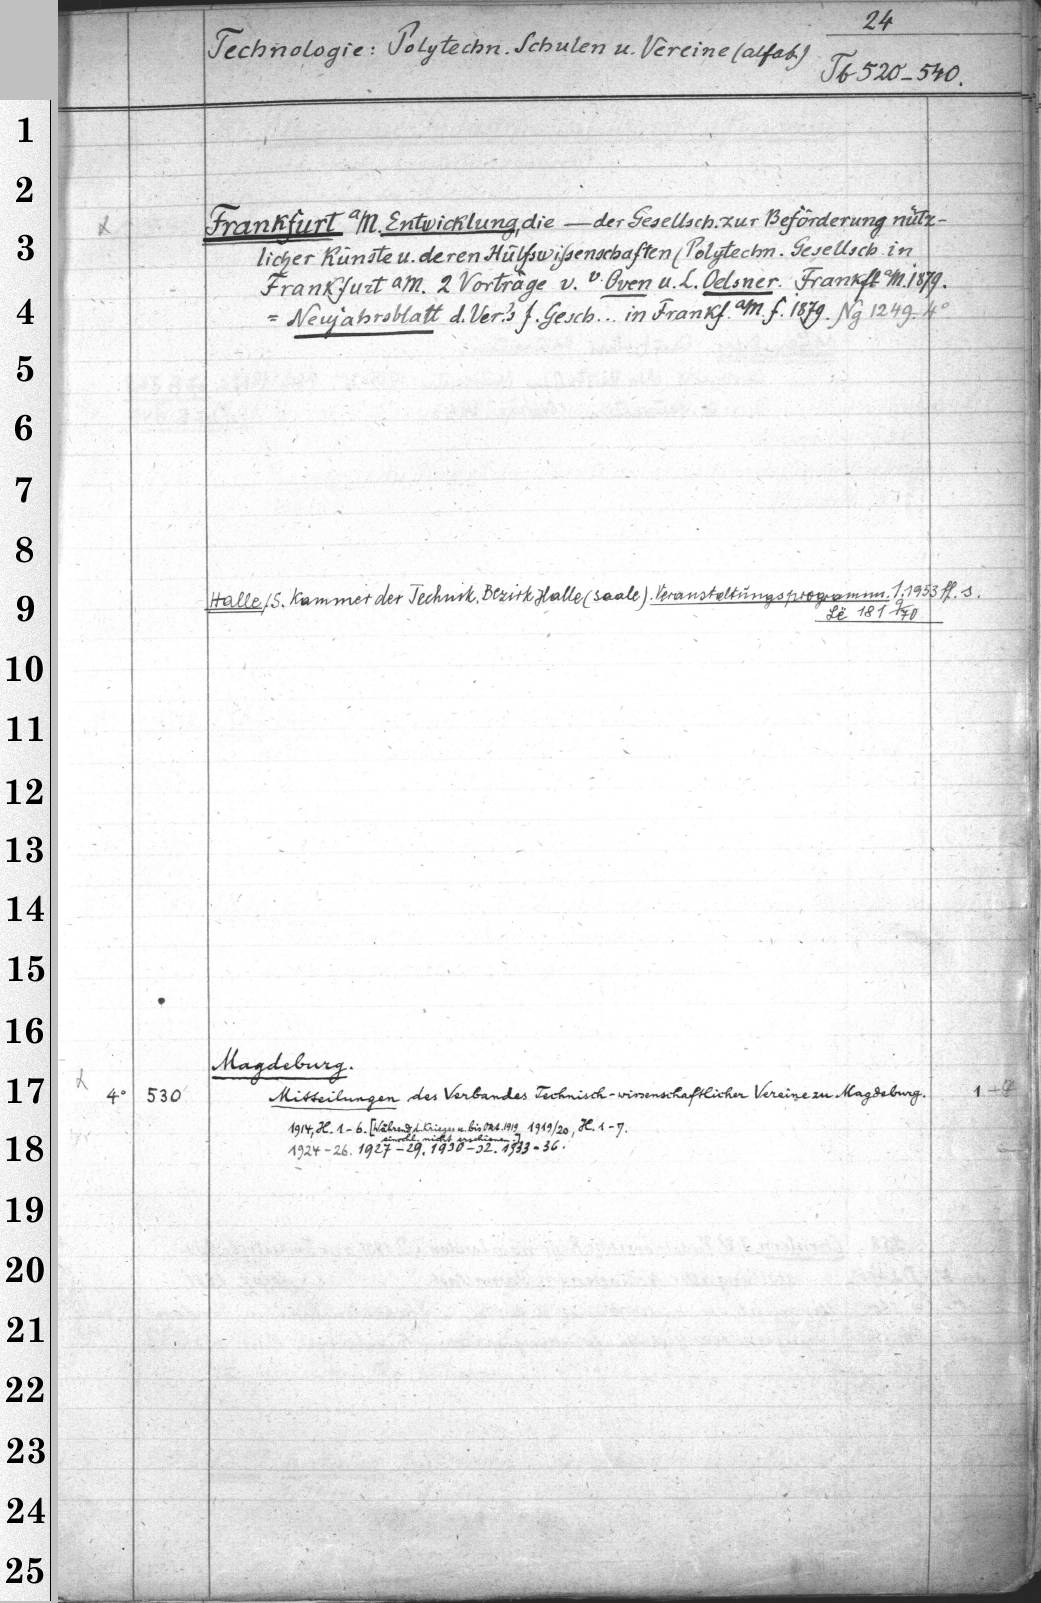 24
Technologie: Polytechn. Schulen u. Vereine (alfab.)
Tb 520-540.
1
2
Frankfurt a/M. Entwicklung, die — der Gesellsch. zur Beförderung nütz-
3
licher Künste u. deren Hülfswissenschaften (Polytechn. Gesellsch. in
Frankfurt a/M. 2 Vorträge v. v. Oven u. L. Oelsner. Frankft a/M. 1879.
4
= Neujahrsblatt d. Ver.'s f. Gesch... in Frankf. a/M. f. 1879. Ng 1249. 4°
5
6
7
8
9
Halle/S. Kammer der Technik. Bezirk Halle (Saale). Veranstaltungsprogramm. 1.1953 ff. s.
Lë 181 9/70
10
11
12
13
14
15
16
Magdeburg.
17
4° 530 Mitteilungen des Verbandes Technisch-wissenschaftlicher Vereine zu Magdeburg. 1
1914, H. 1-6. [Während d. Krieges u. bis Okt. 1919 1919/20, H. 1-7.
einschl. nicht erschienen.]
18
1924-26. 1927-29. 1930-32. 1933-36.
19
20
21
22
23
24
25